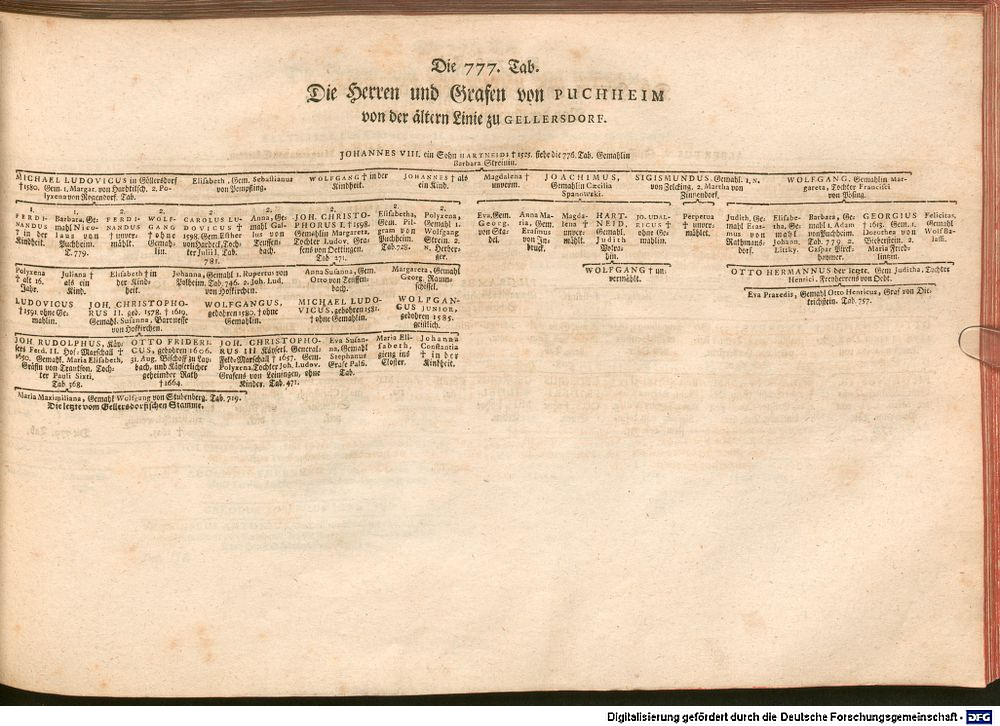 Die 777. Tab.
Die Herren und Grafen von PUCHHEIM
von der ältern Linie zu GELLERSDORF.
JOHANNES VIII. ein Sohn HARTNEIDI † 1525. siehe die 776. Tab. Gemahlin
Barbara Streinin.
MICHAEL LUDOVICUS in Göllersdorf
† 1580. Gem. 1. Margar. von Hardtilsch. 2. Po-
lyxena von Rogendorf. Tab.
Elisabeth, Gem. Sebastianus
von Pempfling.
WOLFGANG † in der
Kindheit.
JOHANNES † als
ein Kind.
Magdalena †
unverm.
JOACHIMUS,
Gemahlin Cæcilia
Spanowski.
SIGISMUNDUS. Gemahl. 1. N.
von Zelcking. 2. Martha von
Zinzendorf.
WOLFGANG. Gemahlin Mar-
gareta, Tochter Francisci
von Pösing.
1.
FERDI-
NANDUS
† in der
Kindheit.
1.
Barbara, Ge-
mahl Nico-
laus von
Puchheim.
T. 779.
2.
FERDI-
NANDUS
† unver-
mählt.
2.
WOLF-
GANG
† ohne
Gemah-
lin.
2.
CAROLUS LU-
DOVICUS †
1598. Gem. Esther
von Hardeck, Toch-
ter Julii I. Tab.
781.
2.
Anna, Ge-
mahl Gal-
lus von
Teuffen-
bach.
2.
JOH. CHRISTO-
PHORUS I. † 1598.
Gemahlin Margareta,
Tochter Ludov. Gra-
fens von Oettingen.
Tab. 271.
2.
Elisabetha,
Gem. Pil-
gram von
Puchheim.
Tab. 728.
2.
Polyxena,
Gemahl 1.
Wolfgang
Strein. 2.
N. Herber-
ger.
Eva, Gem.
Georg.
von Ska-
del.
Anna Ma-
ria, Gem.
Erasmus
von Jn-
bruck.
Magda-
lena †
unver-
mählt.
HART-
NEID,
Gemahl.
Judith
Polea-
hin.
JO. UDAL-
RICUS †
ohne Ge-
mahlin.
Perpetua
† unver-
mählet.
Judith, Ge-
mahl Eras-
mus von
Rathmans-
dorf.
Elisabe-
tha, Ge-
mahl
Johann.
Litzky.
Barbara, Ge-
mahl 1. Adam
von Puchheim.
Tab. 779 2.
Caspar Pirck-
haymer.
GEORGIUS
† 1613. Gem. 1.
Dorothea von
Bieberstein. 2.
Maria Fried-
lingin.
Felicitas,
Gemahl
Wolf Ba-
lassi.
Polyxena
† alt 16.
Jahr.
Juliana †
als ein
Kind.
Elisabeth † in
der Kind-
heit.
Johanna, Gemahl 1. Rupertus von
Polheim. Tab. 746. 2. Joh. Lud.
von Hofkirchen.
Anna Susanna, Gem.
Otto von Teuffen-
bach.
Margareta, Gemahl
Georg. Raum-
schüssel.
WOLFGANG † un-
vermählt.
OTTO HERMANNUS der letzte. Gem Juditha, Tochter
Henrici, Freyherrens von Oedt.
Eva Praxedis, Gemahl Otto Henricus, Graf von Die-
trichstein. Tab. 757.
LUDOVICUS
† 1591. ohne Ge-
mahlin.
JOH. CHRISTOPHO-
RUS II. geb. 1578. † 1619.
Gemahl. Susanna, Baronesse
von Hofkirchen.
WOLFGANGUS,
gebohren 1580. † ohne
Gemahlin.
MICHAEL LUDO-
VICUS, gebohren 1581.
† ohne Gemahlin.
WOLFGAN-
GUS JUNIOR,
gebohren 1585.
geistlich.
JOH RUDOLPHUS, Käy-
sers Ferd. II. Hof-Marschall †
1650. Gemahl. Maria Elisabeth,
Gräfin von Trautson, Toch-
ter Pauli Sixti.
Tab 368.
OTTO FRIDERI-
CUS, gebohren 1606.
31. Aug. Bischoff zu Lay-
bach, und Käyserlicher
geheimder Rath
† 1664.
JOH. CHRISTOPHO-
RUS III Käyserl. General-
Feld-Marschall † 1657. Gem.
Polyxena, Tochter Joh. Ludov.
Grafens von Leiningen, ohne
Kinder. Tab. 471.
Eva Susan-
na, Gemahl
Stephanus
Grafe Palfi.
Tab.
Maria Eli-
sabeth,
gieng ins
Closter.
Johanna
Constantia
† in der
Kindheit.
Maria Maximiliana, Gemahl Wolfgang von Stubenberg. Tab. 719.
Die letzte vom Gellersdorfischen Stamme.
Digitalisierung gefördert durch die Deutsche Forschungsgemeinschaft - DFG